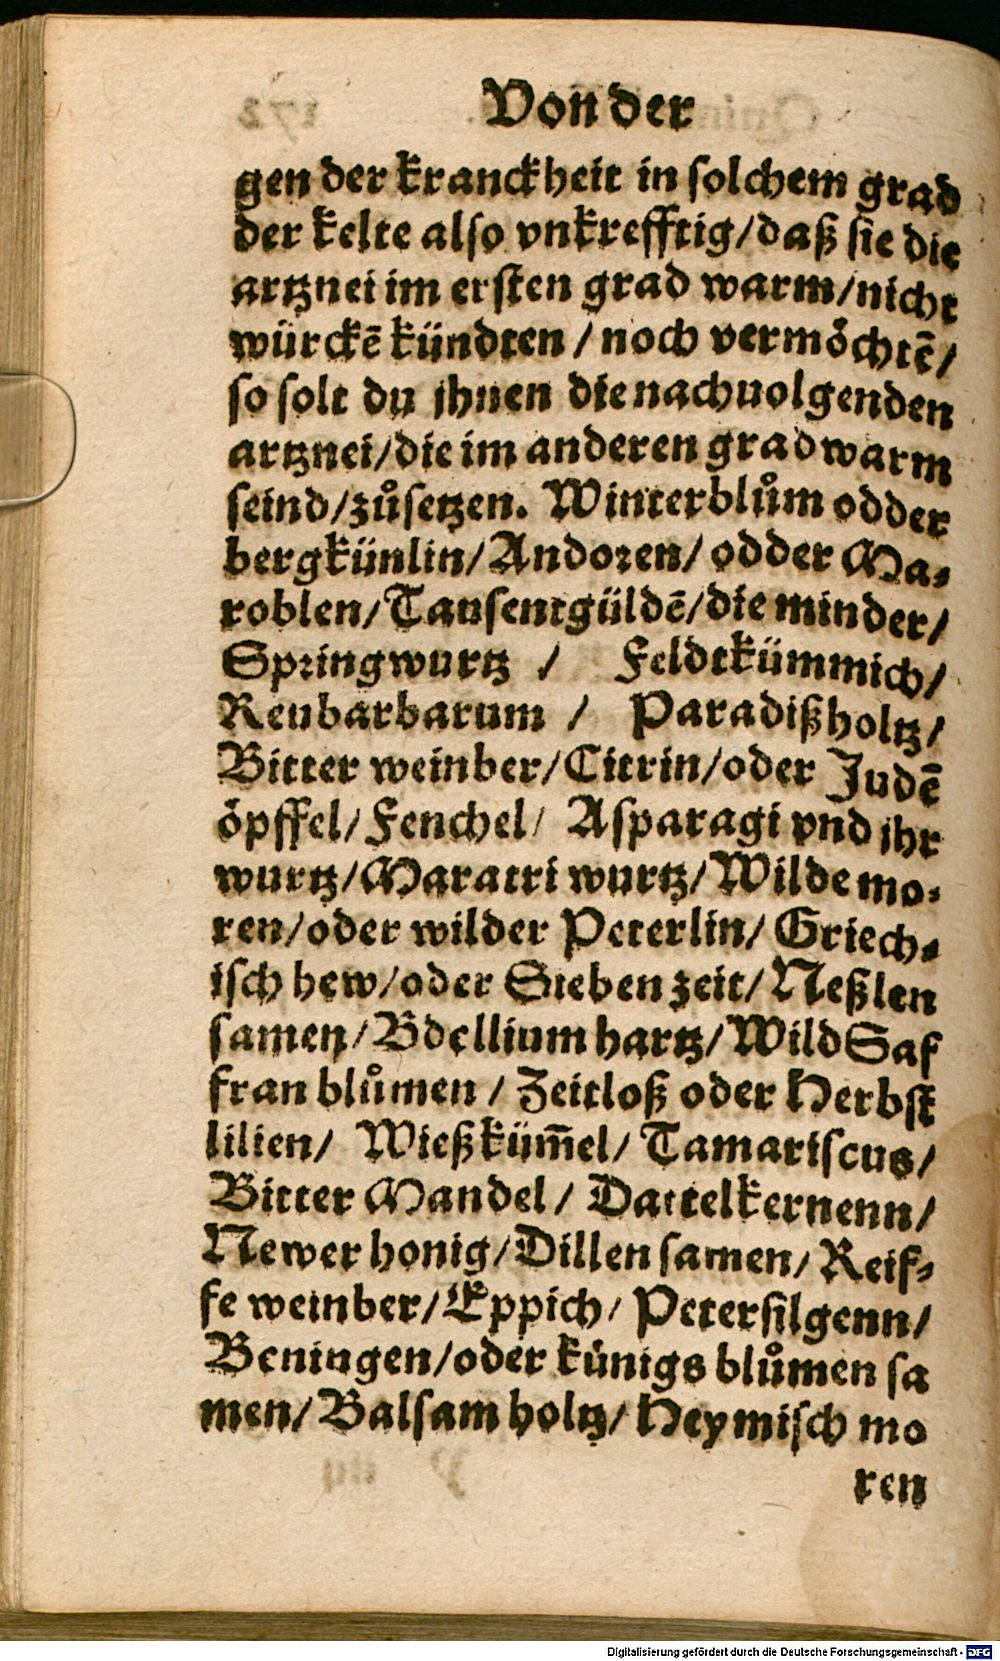 Von der
gen der kranckheit in solchem grad
der kelte also vnkrefftig/daß sie die
artznei im ersten grad warm/nicht
würckē kündten / noch vermöchtē/
so solt du jhnen die nachuolgenden
artznei/die im anderen grad warm
seind/zůsetzen. Winterblům odder
bergkünlin/Andoren/ odder Ma-
roblen/Tausentgüldē/die minder/
Springwurtz / Feldtkümmich/
Reubarbarum / Paradißholtz/
Bitter weinber/Citrin/oder Judē
öpffel/Fenchel/ Asparagi vnd jhr
wurtz/Maratri wurtz/Wilde mo-
ren/oder wilder Peterlin/Griech-
isch hew/oder Sieben zeit/Neßlen
samen/Bdellium hartz/Wild Saf
fran blůmen / Zeitloß oder Herbst
lilien/ Wießküm̄el/ Tamariscus/
Bitter Mandel/ Dattelkernenn/
Newer honig/Dillen samen/Reif-
fe weinber/Eppich/ Petersilgenn/
Beningen/oder künigs blůmen sa
men/Balsam holtz/Heymisch mo
ren
Digitalisierung gefördert durch die Deutsche Forschungsgemeinschaft - DFG